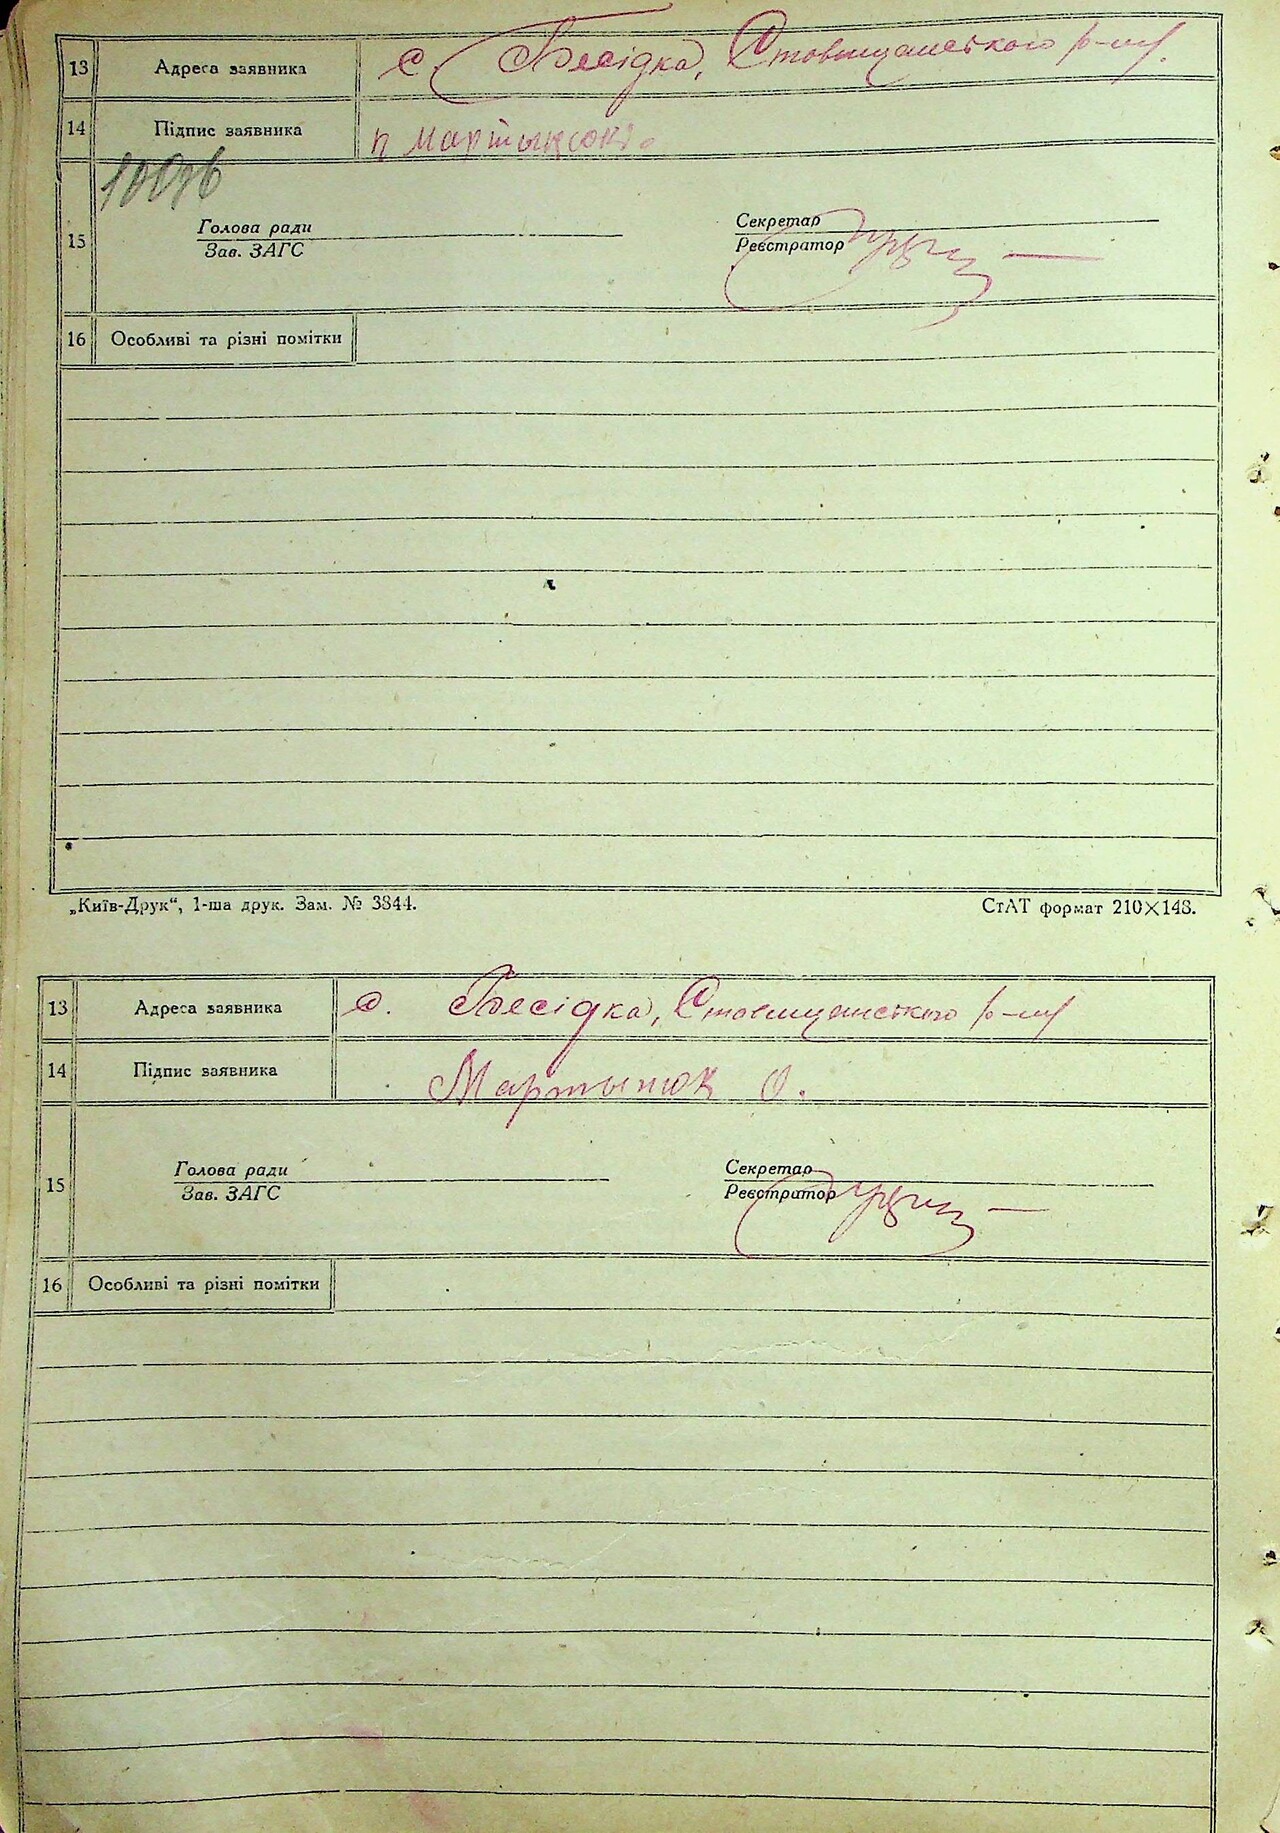 13 Адреса заявника с. Бесідка, Ставищанського р-ну.
14 Підпис заявника п
15
Голова ради Секретар
Зав. ЗАГС Реєстратор
16 Особливі та різні помітки
„Київ-Друк“, 1-ша друк. Зам. № 3344. СтАТ формат 210×148.
13 Адреса заявника с. Бесідка, Ставищанського р-ну
14 Підпис заявника Мартынюк О.
15
Голова ради Секретар
Зав. ЗАГС Реєстратор
16 Особливі та різні помітки